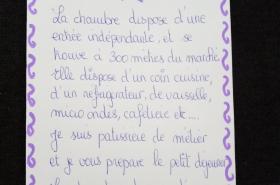 La chambre dispose d'une
entrée indépendante, et se
trouve à 300 mètres du marché
Elle dispose d'un coin cuisine,
d'un refrigerateur, de vaisselle,
micro ondes, cafetière etc....
je suis patissière de métier
et je vous prépare le petit déjeuner